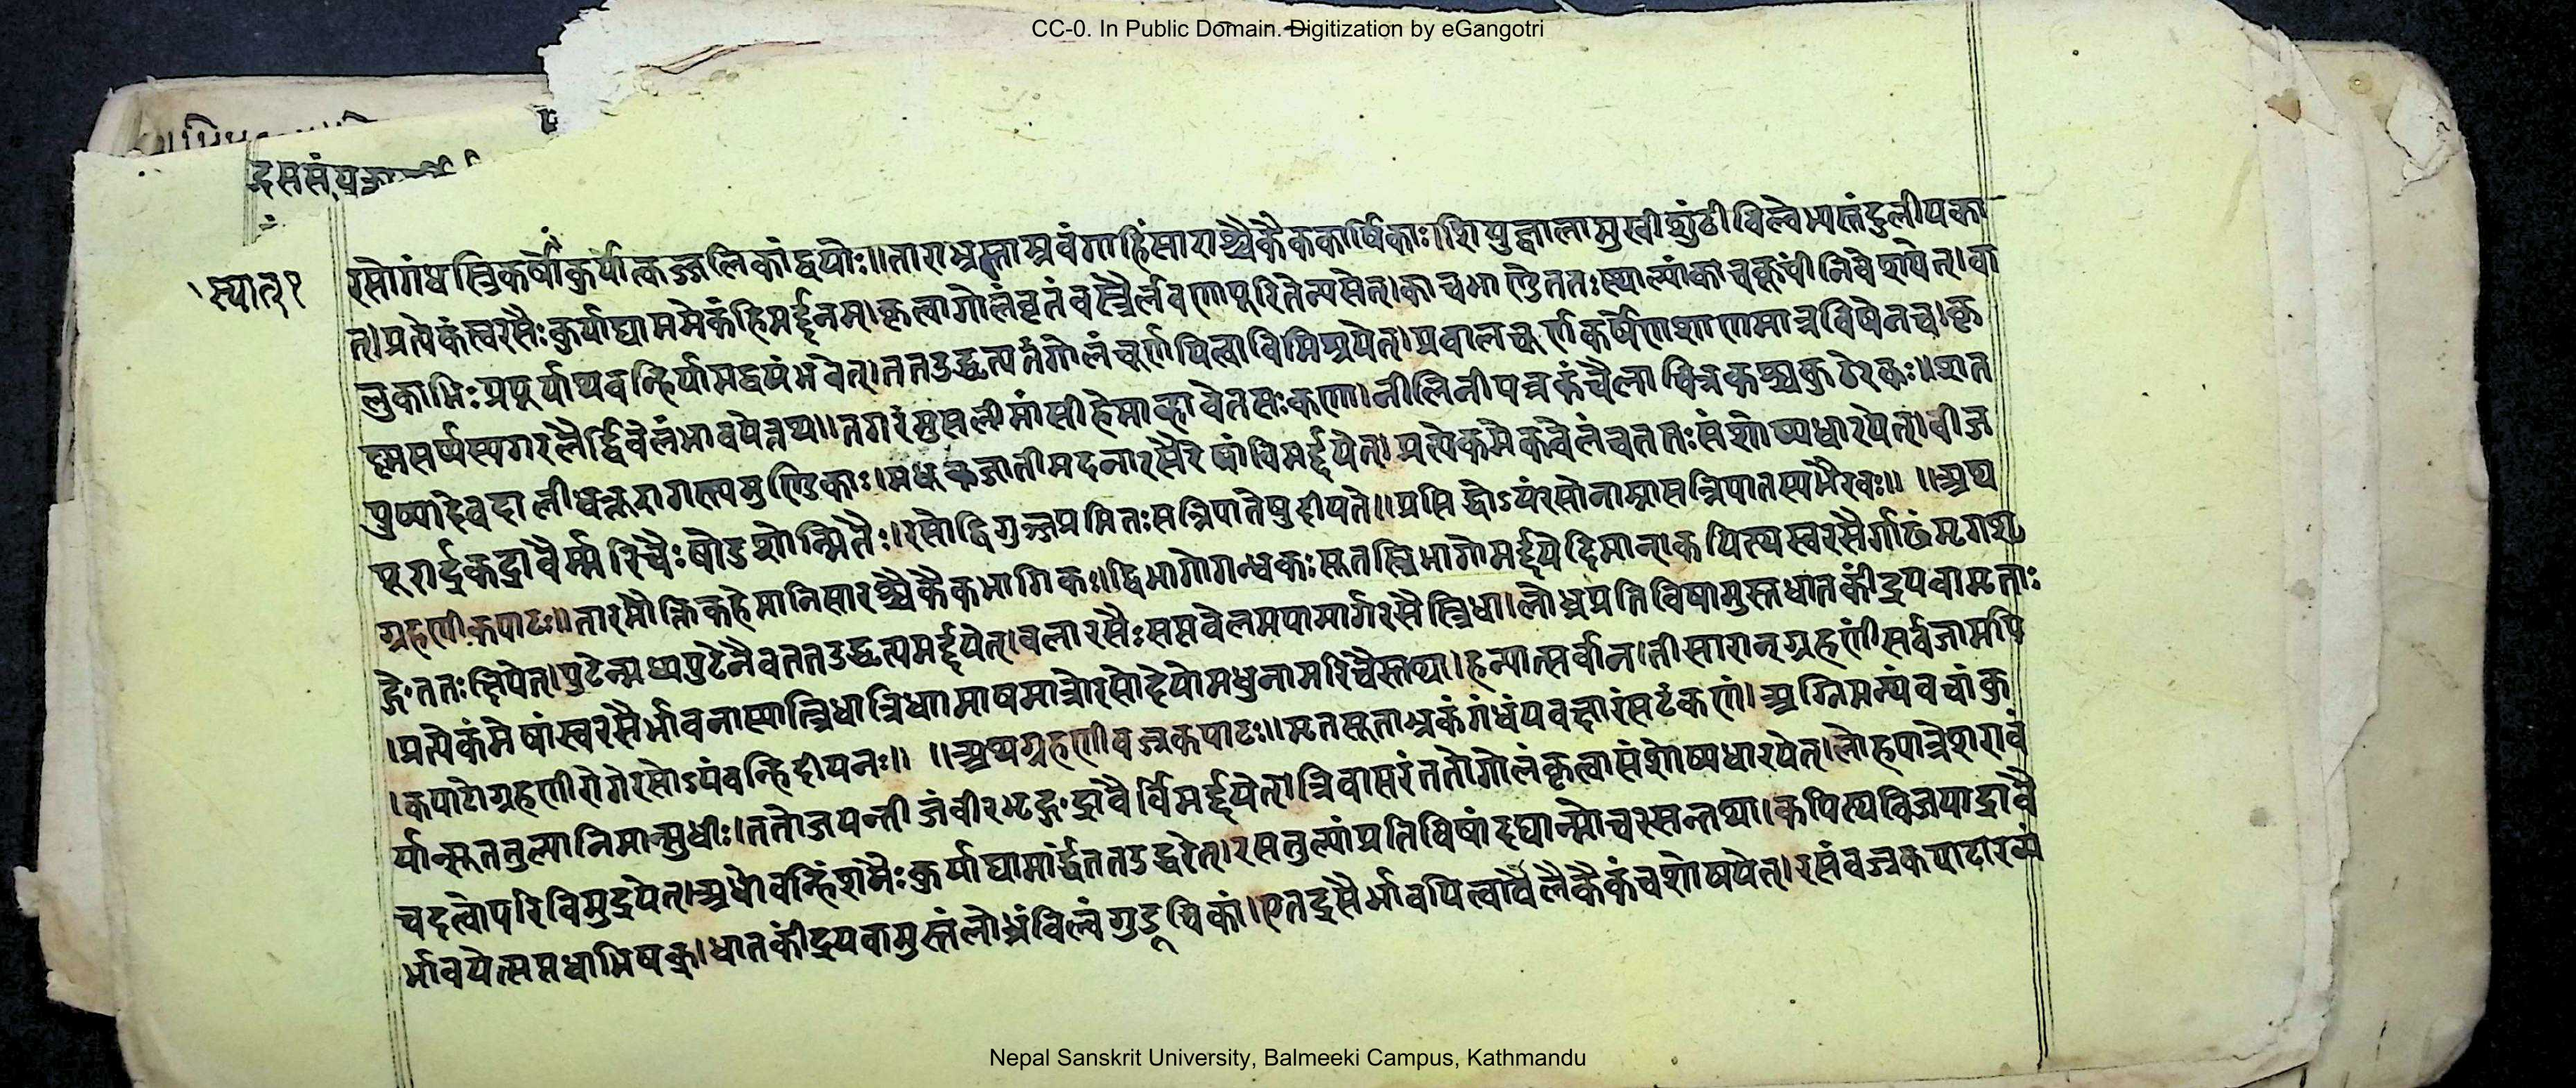 CC-0. In Public Domain. Digitization by eGangotri
स्यात् १
रसोगंधस्त्रिकर्षौकुर्यात्कज्जलिकांद्वयोः॥ताराभ्रताम्रवंगाहिंसाराश्चैकैककार्षिकाः।शिग्रुज्वालामुखीशुंठीबिल्वेभ्यस्तंदुलीयका
त्।प्रत्येकंस्वरसैःकुर्याद्यामंमेकंहिमर्द्दनम्।कृत्वागोलंवृतंवस्त्रैर्लवणापूरितेन्यसेत्।काचभाण्डेततःस्थाल्यांकाचकूपीनिवेशयेत्।वा
लुकाभिःप्रपूर्याथवन्हिर्यामद्वयंभवेत्।ततउद्धृत्यतंगोलंचूर्णयित्वाविमिश्रयेत्।प्रवालचूर्णकर्षेणशाणमात्रविषेनच।कृ
ह्मसर्प्पस्यगरलैर्द्विवेलंभावयेत्तथ॥तगरंमुसलीमांसीहेमाव्हावेतसःकणा।नीलिनीपत्रकंचैलाचित्रकश्चकुठेरकः॥शत
पुष्पादेवदालीधत्तूरागस्त्यमुण्डिकाः।मधूकजातीमदनारसैरेषांविमर्द्दयेत्।प्रत्येकमेकवेलंचततःसंशोष्यधारयेत्।वीज
पूरार्द्रकद्रावैर्म्मरिचैःषोडशोन्मितैः।रसोद्विगुञ्जप्रमितःसन्निपातेषुदीयते॥प्रसिद्धोऽयंरसोनाम्नासन्निपातस्यभैरवः॥ ॥अथ
ग्रहणीकपाटः॥तारमौक्तिकहेमानिसारश्चैकैकभागिकः॥द्विभागोगन्धकःसूतस्त्रिभागोमर्द्दयेदिमान्।कपित्थस्वरसैर्गाढंमृगशृ
ङ्गेततःक्षिपेत्।पुटेन्मध्यपुटेनैवततउद्धृत्यमर्द्दयेत्।बलारसैःसप्तवेलमपामार्गरसैस्त्रिधा।लोध्रप्रतिविषामुस्तधातकींद्रयवामृताः
।प्रत्येकंमेषांस्वरसैर्भावनास्यात्त्रिधात्रिधामाषमात्रोरसोदेयोमधुनामरिचैस्तथा।हन्यात्सर्वान।तीसारान्ग्रहणींसर्वजामपि
।कपाटोग्रहणीरोगेरसोऽयंवन्हिदीपनः॥ ॥अथग्रहणीवज्रकपाटः॥मृतसूताभ्रकंगंधंयवक्षारंसटंकणं।अग्निमन्थंवचांकु
र्यात्सूततुल्यानिमान्सुधीः।ततोजयन्तीजंवीरभृङ्गद्रावैर्विमर्द्दयेत्।त्रिवासरंततोगोलंकृत्वासंशोष्यधारयेत्।लोहपात्रेशरावं
चदत्वोपरिविमुद्रयेत्।अधोवन्हिंशनैःकुर्याद्यामांर्द्धततउद्धरेत्।रसतुल्यांप्रतिविषांदद्यान्मोचरसन्तथा।कपित्थविजयाद्रावै
र्भावयेत्सप्तधाभिषक्।धातकींद्रयवामुस्तंलोध्रंविल्वंगुडूचिकां।एतद्रसैर्भावयित्वावैलैकैकंचशोषयेत्।रसंवज्रकपाटारव्यं
Nepal Sanskrit University, Balmeeki Campus, Kathmandu